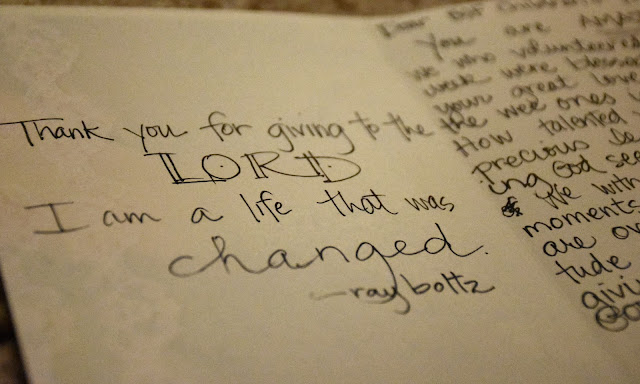 Thank you for giving to the
LORD
I am a life that was
changed.
—ray boltz
Dear
You are
we who volunteered
week were
your great love
the wee ones
How talented
precious
ing God see
We with
moments
are
tude
givi